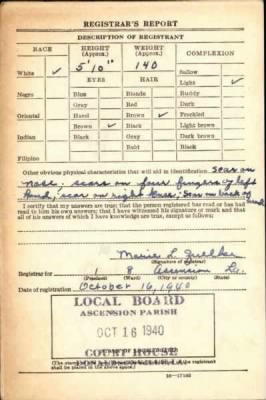 REGISTRAR'S REPORT
DESCRIPTION OF REGISTRANT
RACE HEIGHT (Approx.) WEIGHT (Approx.) COMPLEXION
5' 10" 140
White ✓ EYES HAIR Sallow
Light ✓
Negro Blue Blonde Ruddy
Gray Red Dark
Oriental Hazel Brown ✓ Freckled
Brown ✓ Black Light brown
Indian Black Gray Dark brown
Bald Black
Filipino
Other obvious physical characteristics that will aid in identification Scar on
nose. scars on four fingers of left
hand, scar on right knee, scar on back of
I certify that my answers are true; that the person registered has read or has had
read to him his own answers; that I have witnessed his signature or mark and that
all of his answers of which I have knowledge are true, except as follows:
Marie L.
(Signature of registrar)
Registrar for 1 8 Ascension La.
(Precinct) (Ward) (City or county) (State)
Date of registration October 16, 1940
LOCAL BOARD
ASCENSION PARISH
OCT 16 1940
COURT HOUSE
(The stamp of the
shall be placed in the above space.)
16—17105